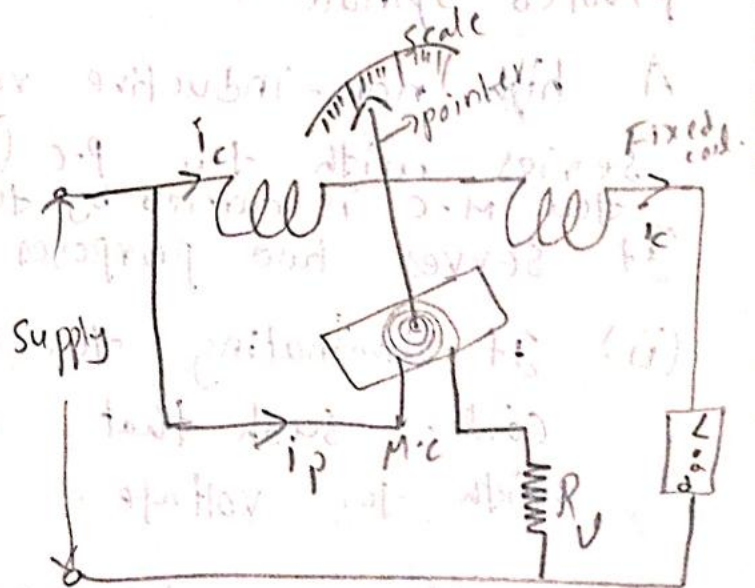 scale
pointer
ic
Fixed
coil
ic
Supply
ip
M.C
Load
Rv